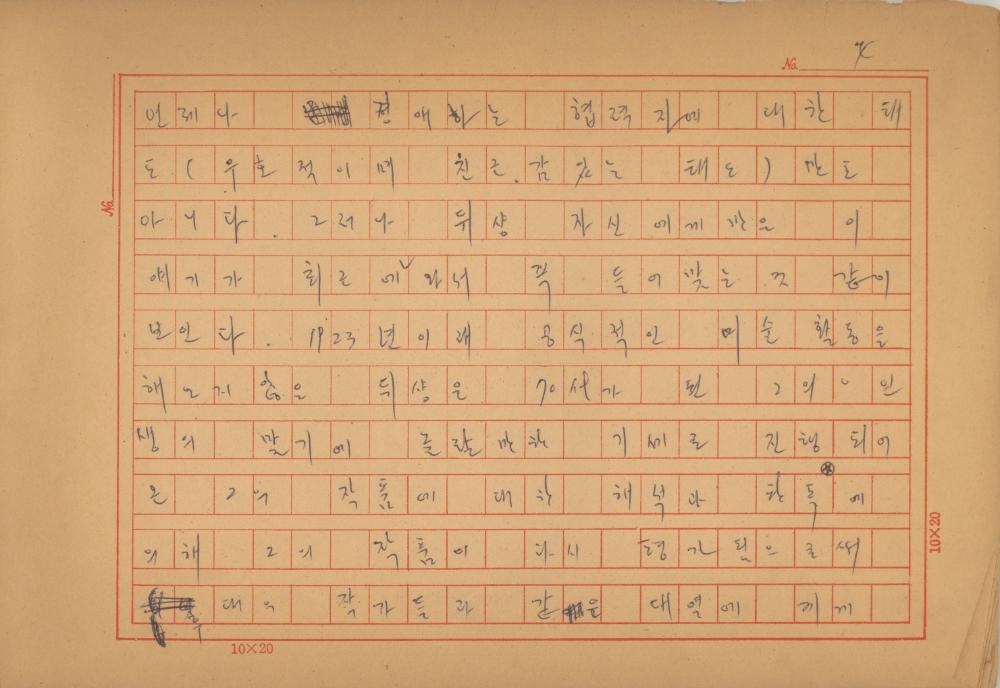 No.
언제나 친애하는 협력자에 대한 태
도(우호적이며 친근감있는 태도)만도
아니다. 그러나 뒤샹 자신에게만은 이
얘기가 최근에 와서 꼭 들어맞는 것 같이
보인다. 1923년이래 공식적인 미술 활동을
해오지 않은 뒤샹은 70서가 된 그의 인
생의 말기에 놀랄만한 기세로 진행되어
온 그의 작품에 대한 해석과 판독에
의해 그의 작품이 다시 평가됨으로써
대의 작가들과 같은 대열에 끼게
No.
10×20
10×20